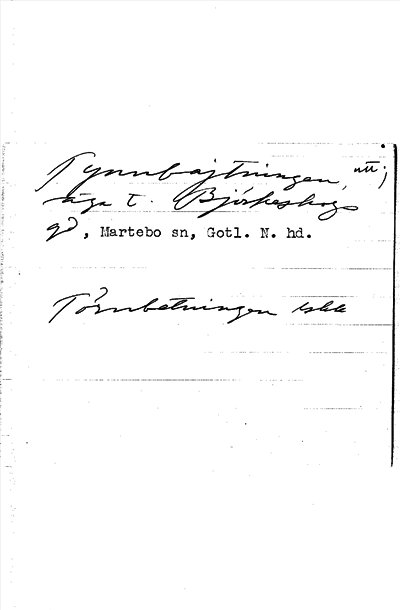 Tynnbajtningen, utt;
äga t. Björkeskogs
gd, Martebo sn, Gotl. N. hd.
Törnbetningen